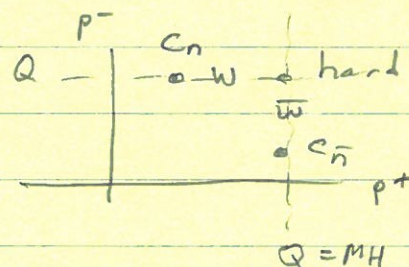 p⁻
Q Cₙ W hard
W̄
C_n̄
p⁺
Q = MH